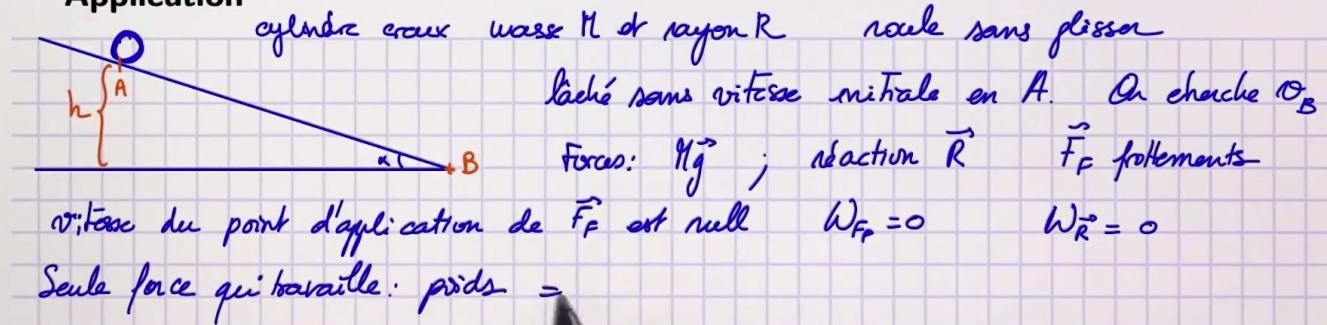 Application
cylindre creux masse M et rayon R roule sans glisser
lâché sans vitesse initiale en A. On cherche v_B
h A α B
Forces: Mg⃗ ; réaction R⃗ F⃗_F frottements
vitesse du point d'application de F⃗_F est null W_{F_F} = 0 W_{R⃗} = 0
Seule force qui travaille: poids =